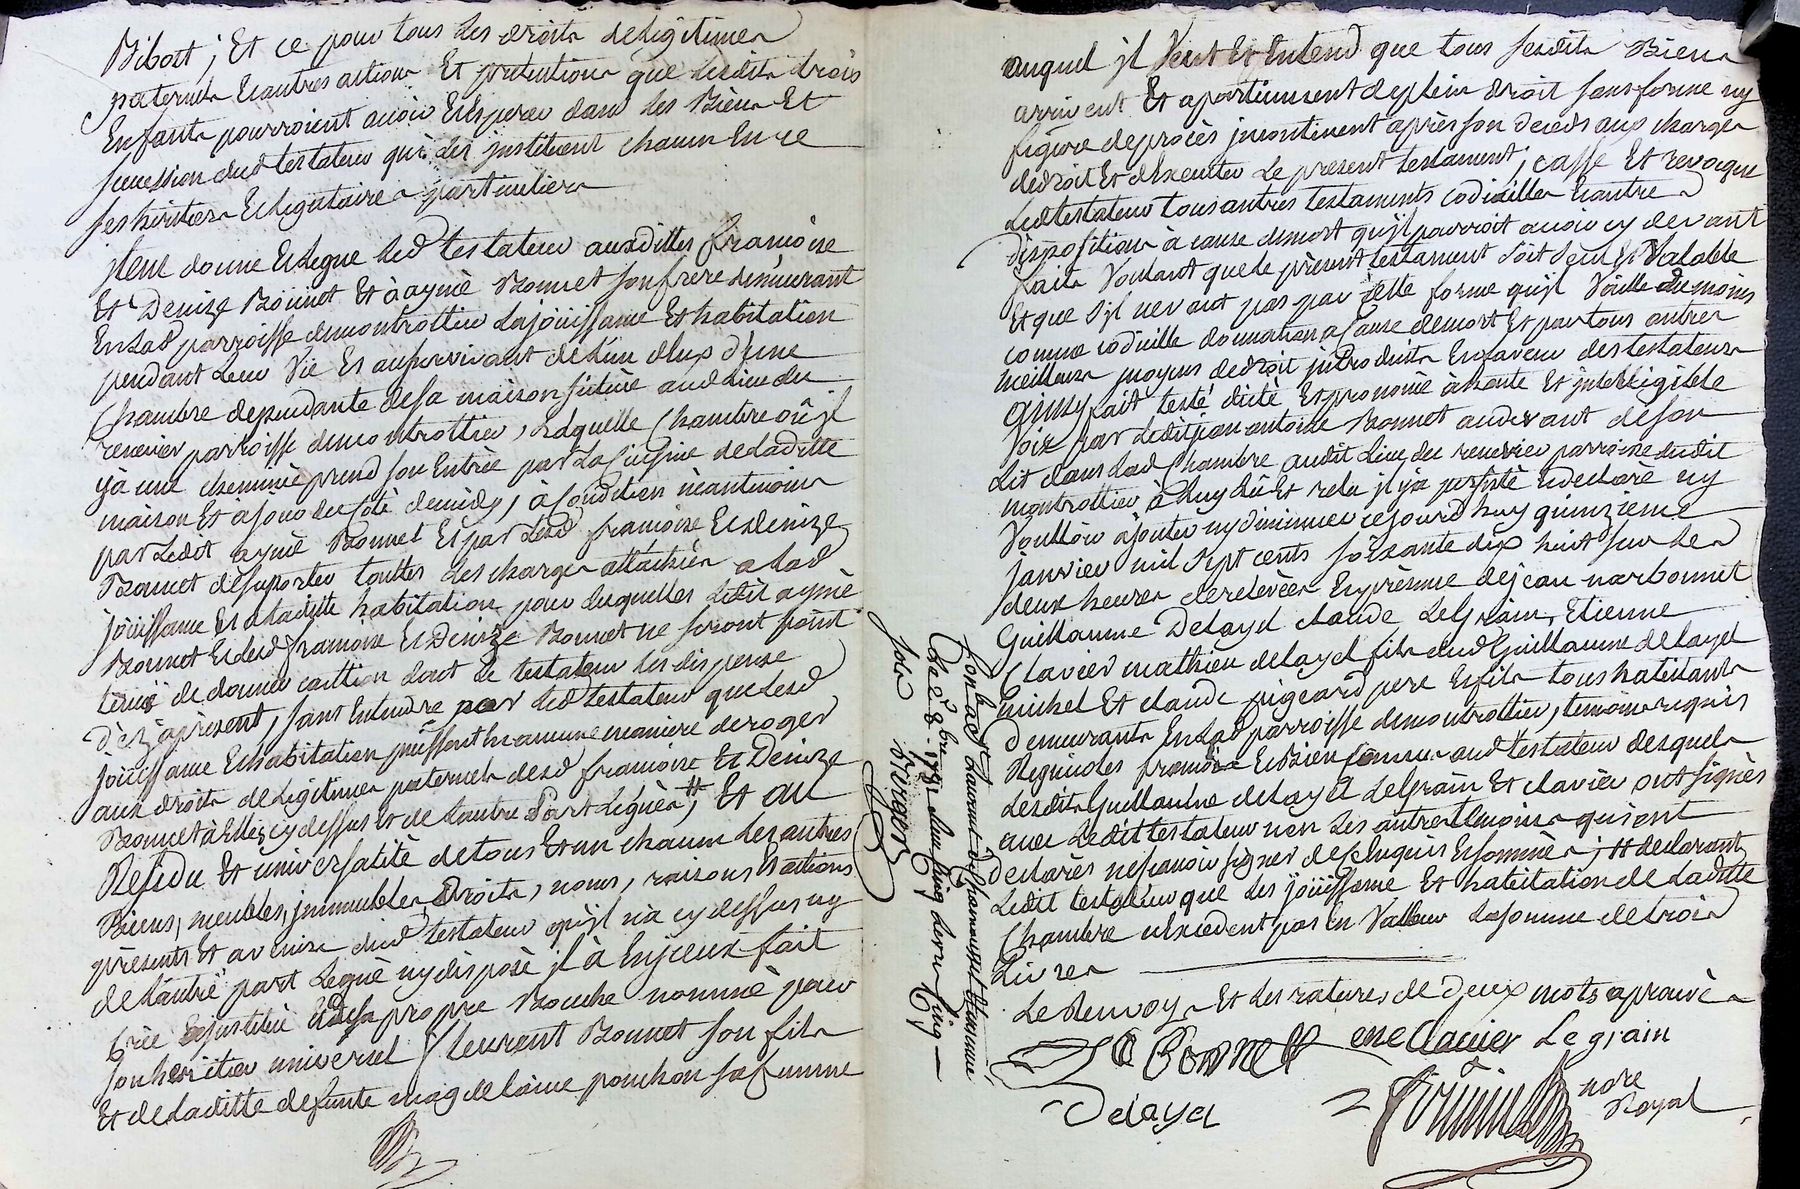 Bibost ; Et ce pour tous les droits de legitimes
paternels Et autres actions Et pretentions que lesdits trois
Enfants pourroient avoir Et Esperer dans les Biens Et
succession dud testateur qui les instituent chacun En ce
ses heritiers Et legataires particuliers
plus donne Et legue led testateur auxdittes francoise
Et Denize Bonnet Et à aymé Bonnet son frere demeurant
En lad parroisse de montrottier la jouissance Et habitation
pendant Leur Vie Et au survivant de l'un d'Eux d'une
Chambre dependante de sa maison située aud Lieu du
reverier parroisse de montrottier, Laquelle Chambre où il
y a une cheminée prend son Entrée par La Cuisine de laditte
maison Et a jour du coté de midy, à Condition neantmoins
par Ledit aymé Bonnet Et par Lesd francoise Et denize
Bonnet de suporter touttes les charges attachées a lad
jouissance Et a laditte habitation pour lesquelles Ledit aymé
Bonnet Et lesd francoise Et Denize Bonnet ne seront point
tenus de donner caution dont le testateur les dispense
Dèz àprésent, sans Entendre par led testateur que lesd
jouissance Et habitation puissent En aucune maniere deroger
aux droits de legitimes paternels desd francoise Et Denize
Bonnet à Elles cy dessus et de l'autre Part Legués #, Et au
Residu Et universalité de tous Et un chacun les autres
Biens, meubles, immeubles Droits, noms, raisons Et actions
présents Et avenirs dud testateur qu'il n'a cy dessus ny
de l'autre part Legué ny disposé il à Enjceux fait
Crée Et institué Et de sa propre Bouche nommé pour
son heritier universel sr Laurent Bonnet son fils
Et de Laditte defunte magdelaine ponchon sa femme
auquel il Veut Et Entend que tous sesdits Biens
arrivent Et apartiennent de plein droit sans forme ny
figure de procès incontinent après son deceds aux charges
de droit Et d'Executer Le present testament ; casse Et revoque
Ledit testateur tous autres testaments codicilles Et autres
dispositions à cause de mort qu'il pourroit avoir cy devant
faits Voulant que le présent testament soit seul Et Valable
Et que s'il ne vaut pas par telle forme qu'il Vaille du moins
comme codicille donnation a Cause de mort Et par tous autres
meilleurs moyens de droit introduits En faveur des testateurs
ainsy fait testé dicté Et prononcé à haute Et intelligible
Voix par Ledit jean antoine Bonnet au devant de son
Lit dans lad Chambre audit Lieu du reverier parroisse dudit
montrottier à Luy Lû Et relu il y a persisté Et declaré ny
Vouloir ajouter ny diminuer cejourd'huy quinzieme
janvier mil sept cents soixante dix huit sur les
deux heures de relevée En présence de jean narbonnet
Guillaume Delayel claude Legrain, Etienne
Clavier mathieu delayel fils dud Guillaume delayel
michel Et claude pigeard pere Et fils tous habitants
Demeurants En lad parroisse de montrottier, temoins requis
Regnicoles francois Et Bien Connus aud testateur desquels
Lesdits Guillaume delayel Legrain Et clavier ont signés
avec Ledit testateur non les autres temoins qui ont
declarés ne scavoir signer de ce Enquis Et sommés ; # declarant
Ledit testateur que les jouissance Et habitation de laditte
Chambre n'Excedent pas En Valleur la somme de trois
Livres
Le Renvoy Et les ratures de deux mots aprouvés
J A Bonnet ene Clavier Legrain
Delayel
nore
Royal
Con lad
Laurent
Reçu